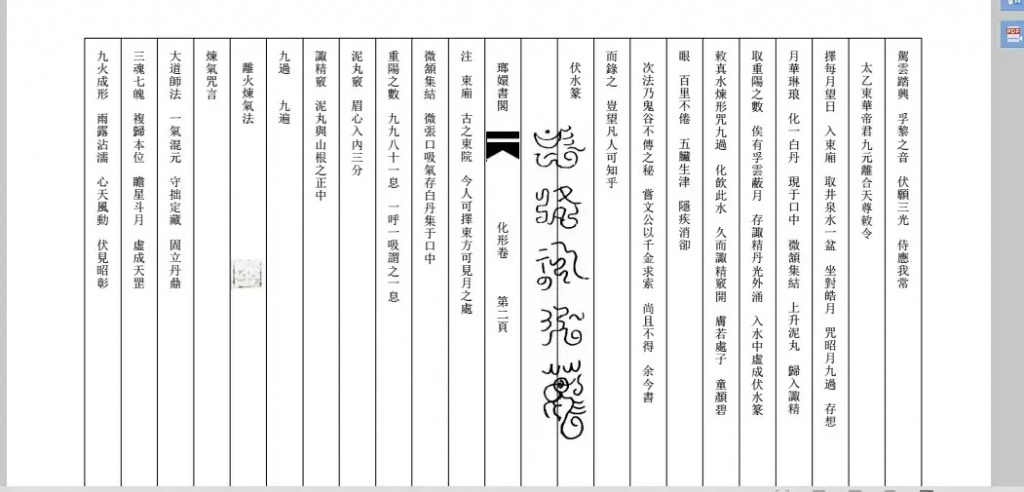 駕雲踏興 孚黎之音 伏願三光 侍應我常
太乙東華帝君九元離合天尊敕令
擇每月望日 入東廂 取井泉水一盆 坐對皓月 咒昭月九過 存想
月華琳琅 化一白丹 現于口中 微頷集結 上升泥丸 歸入諏精
取重陽之數 俟有孚雲蔽月 存諏精丹光外涌 入水中虛成伏水篆
敕真水煉形咒九過 化飲此水 久而諏精竅開 膚若處子 童顏碧
眼 百里不倦 五臟生津 隱疾消卻
次法乃鬼谷不傳之秘 嘗文公以千金求索 尚且不得 余今書
而錄之 豈望凡人可知乎
伏水篆
瑯嬛書閣 化形卷 第二頁
注 東廂 古之東院 今人可擇東方可見月之處
微頷集結 微張口吸氣存白丹集于口中
重陽之數 九九八十一息 一呼一吸謂之一息
泥丸竅 眉心入內三分
諏精竅 泥丸與山根之正中
九過 九遍
離火煉氣法
煉氣咒言
大道師法 一氣混元 守拙定藏 固立丹鼎
三魂七魄 複歸本位 瞻星斗月 虛成天罡
九火成形 雨露沾濡 心天風動 伏見昭彰
PDF